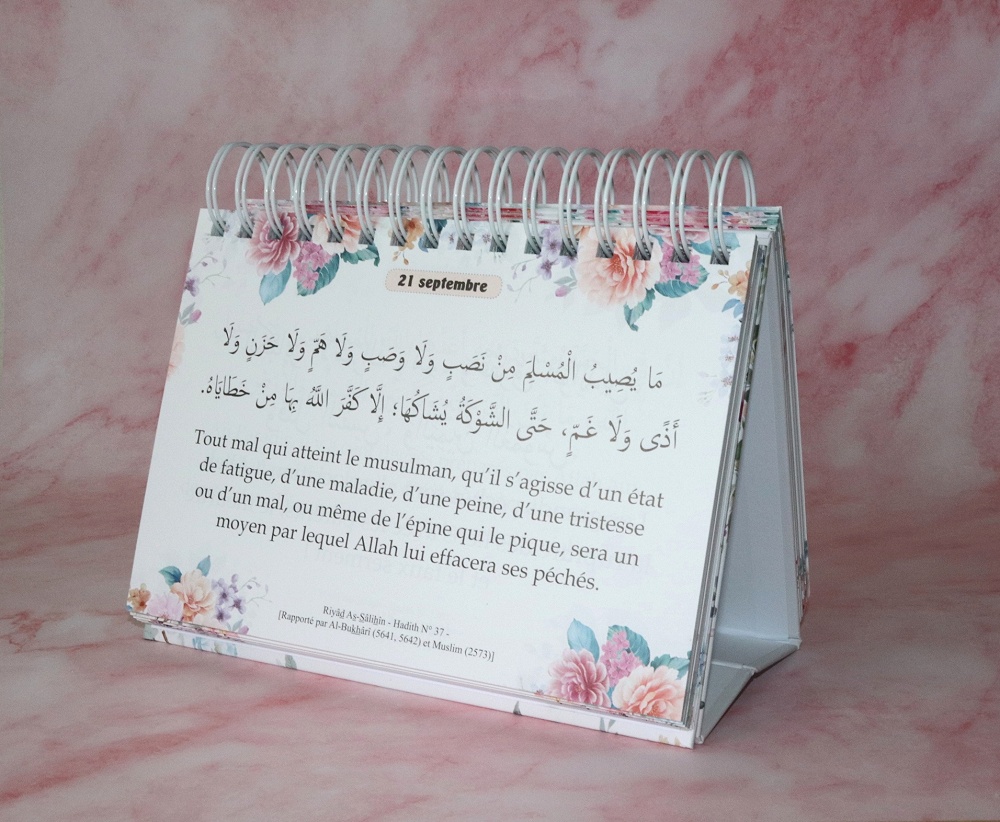 21 septembre
مَا يُصِيبُ الْمُسْلِمَ مِنْ نَصَبٍ وَلَا وَصَبٍ وَلَا هَمٍّ وَلَا حَزَنٍ وَلَا
أَذًى وَلَا غَمٍّ، حَتَّى الشَّوْكَةُ يُشَاكُهَا؛ إِلَّا كَفَّرَ اللَّهُ بِهَا مِنْ خَطَايَاهُ.
Tout mal qui atteint le musulman, qu’il s’agisse d’un état
de fatigue, d’une maladie, d’une peine, d’une tristesse
ou d’un mal, ou même de l’épine qui le pique, sera un
moyen par lequel Allah lui effacera ses péchés.
Riyâḍ Aṣ-Ṣâliḥîn - Hadith N° 37 -
[Rapporté par Al-Bukẖârî (5641, 5642) et Muslim (2573)]